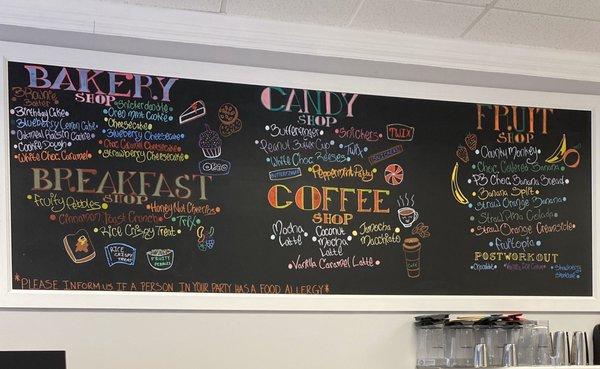 BAKERY
SHOP
Brownie
Batter
Birthday Cake
Blueberry Lemon
Oatmeal Raisin Cookie
Cookie Dough
White Choc Caramel
Snickerdoodle
Oreo Mint Cookie
Cheesecake
Blueberry Cheesecake
Choc Caramel Cheesecake
Strawberry Cheesecake
BREAKFAST
SHOP
Fruity Pebbles
Honey Nut Cheerios
Cinnamon Toast Crunch
Trix
Rice Crispy Treat
RICE
CRISPY
TREAT
FRUITY
PEBBLES
CANDY
SHOP
Butterfinger
Snickers
TWIX
Peanut Butter Cup
Twix
White Choc Reeses
SNICKERS
BUTTERFINGER
Peppermint Patty
COFFEE
SHOP
Mocha
Latte
Coconut
Mocha
Latte
Caramel
Macchiato
Vanilla Caramel Latte
FRUIT
SHOP
Chunky Monkey
Choc Covered Banana
PB Choc Banana Bread
Banana Split
Straw Orange Banana
Straw Pina Colada
Straw Orange Creamsicle
Fruitopia
POSTWORKOUT
Chocolate
Strawberry
*PLEASE INFORM US IF A PERSON IN YOUR PARTY HAS A FOOD ALLERGY*